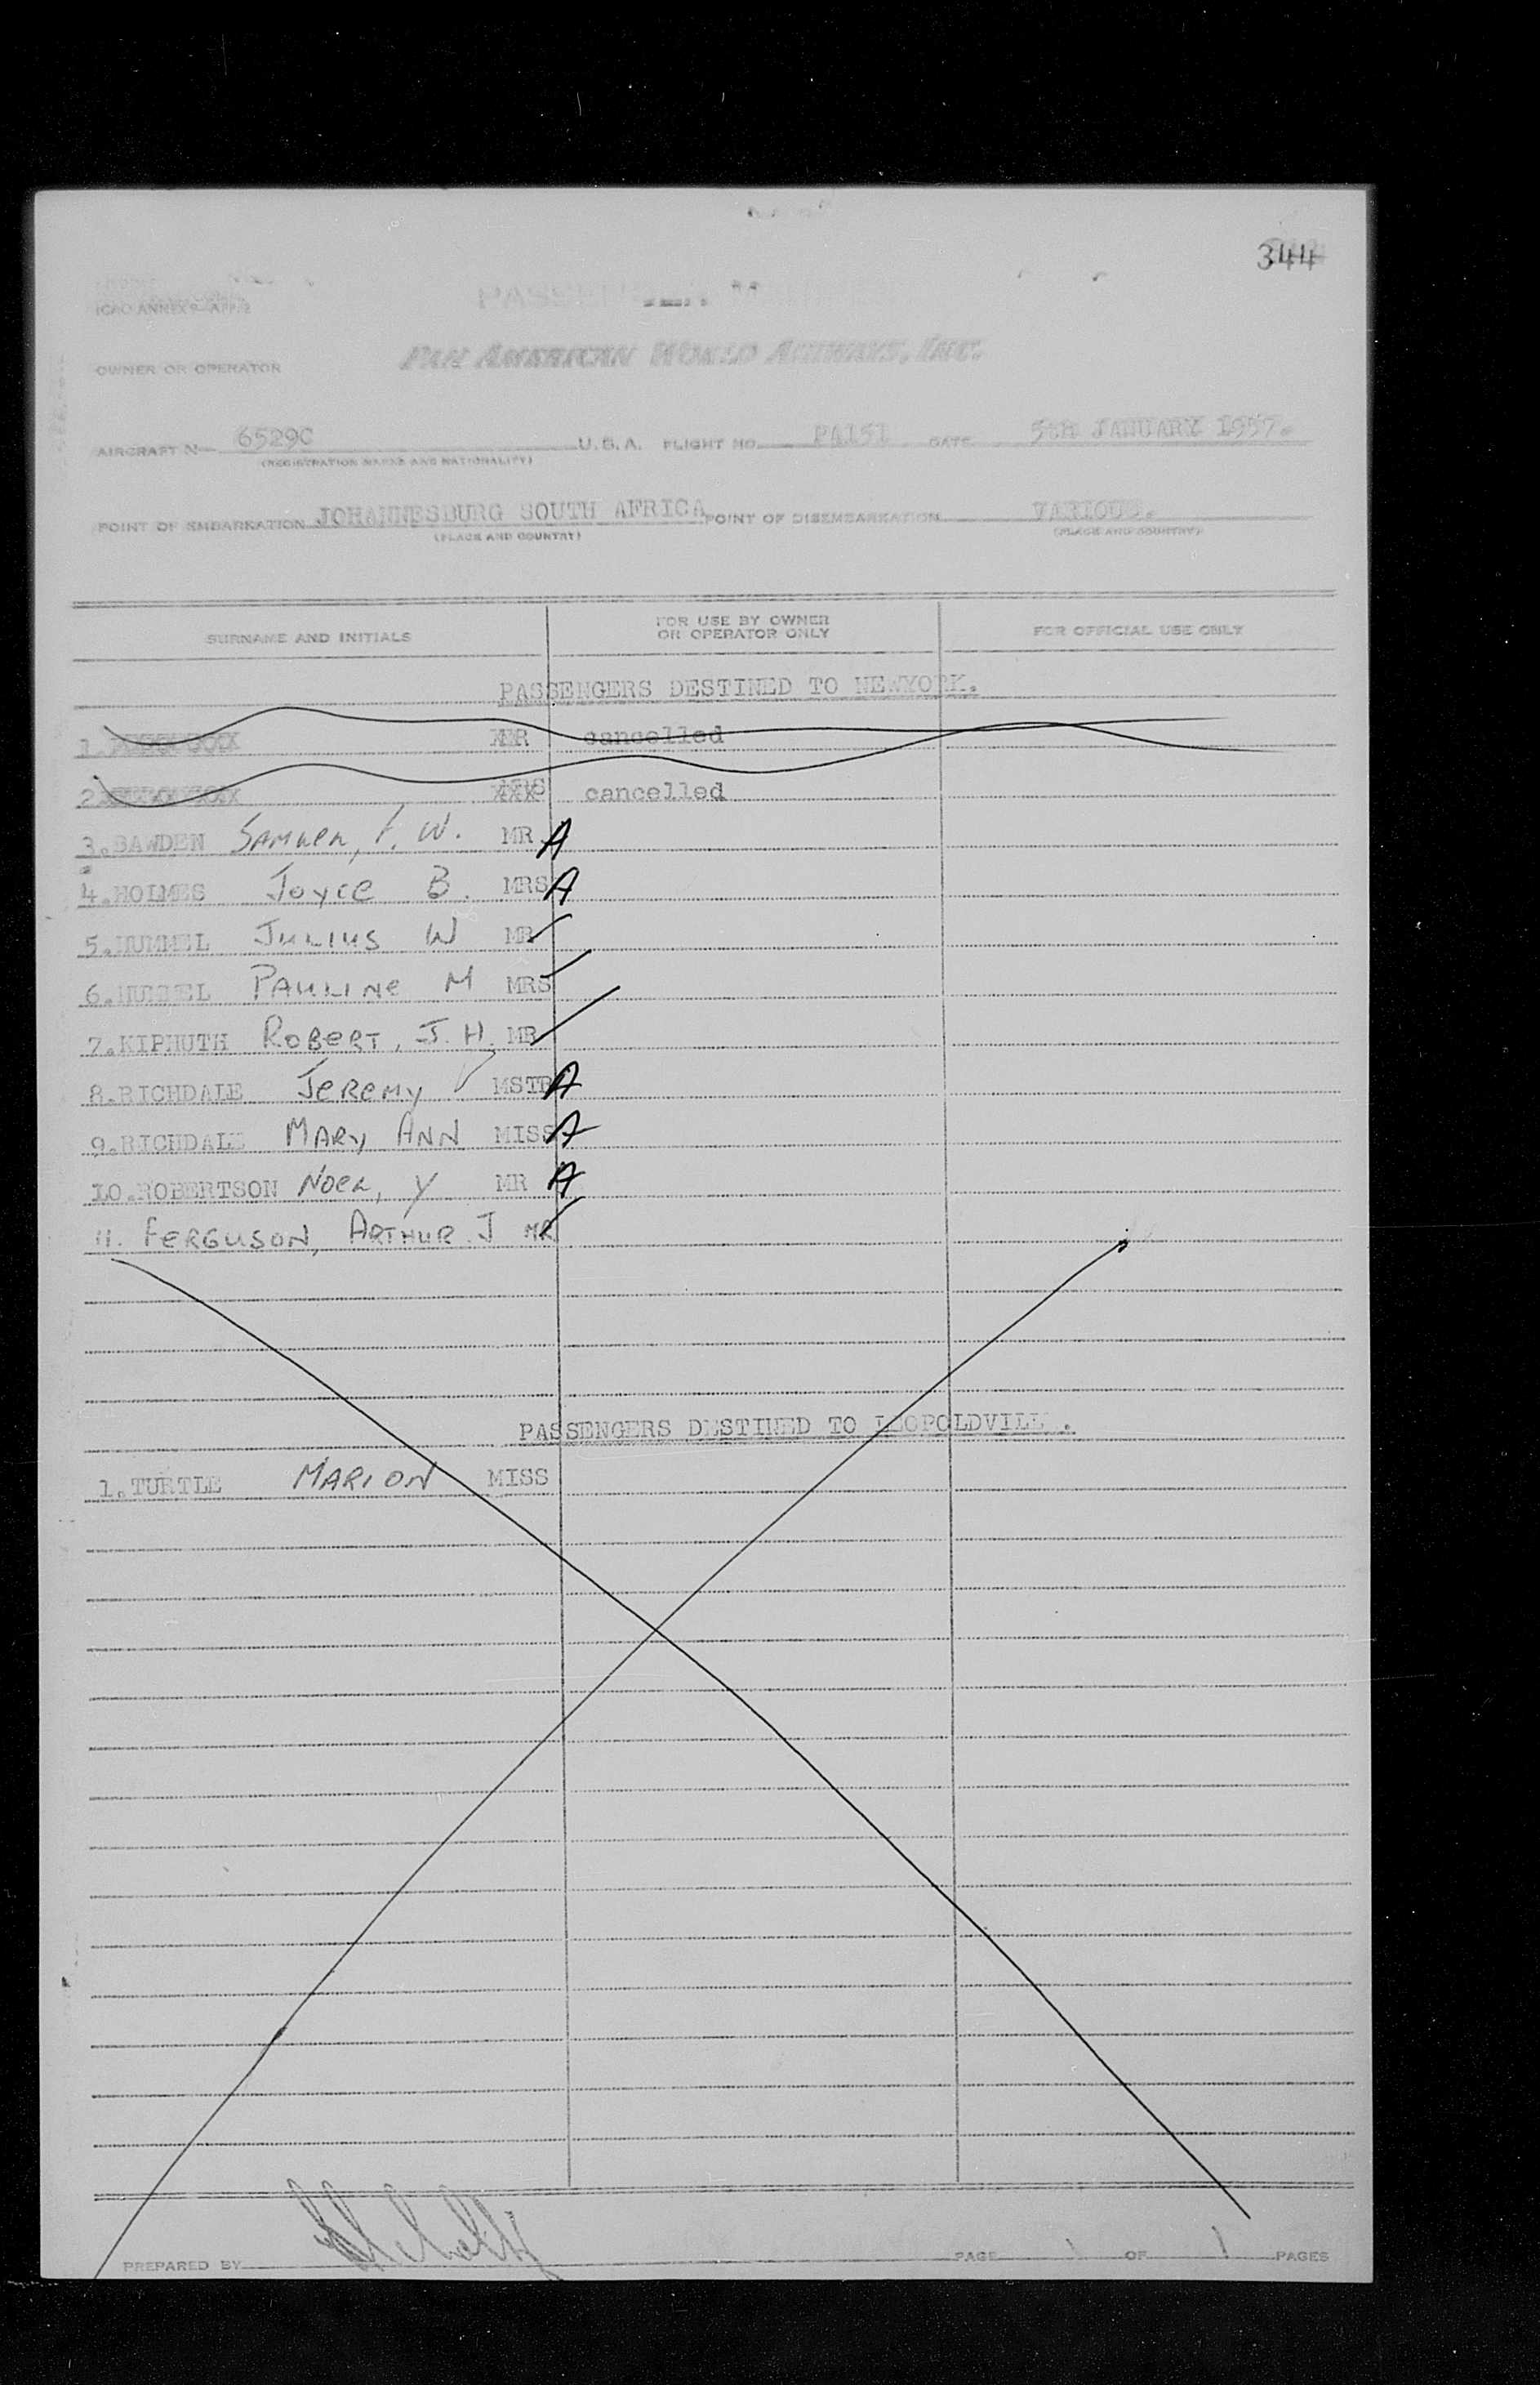 344
ICAO ANNEX 9—APP. 2
PASSENGER
OWNER OR OPERATOR PAN AMERICAN WORLD AIRWAYS, INC.
AIRCRAFT N— 6529C U.S.A. FLIGHT NO. PA151 DATE 5TH JANUARY 1957.
(REGISTRATION MARKS AND NATIONALITY)
POINT OF EMBARKATION JOHANNESBURG SOUTH AFRICA POINT OF DISEMBARKATION VARIOUS.
(PLACE AND COUNTRY) (PLACE AND COUNTRY)
SURNAME AND INITIALS FOR USE BY OWNER OR OPERATOR ONLY FOR OFFICIAL USE ONLY
PASSENGERS DESTINED TO NEWYORK.
1. MR cancelled
2 MRS cancelled
3.BAWDEN Samuel, F. W. MR A
4.HOLMES Joyce B. MRS A
5.HUMMEL Julius W MR
6.HUMMEL Pauline M MRS
7.KIPHUTH Robert, J. H. MR
8.RICHDALE Jeremy MSTR A
9.RICHDALE Mary Ann MISS A
10.ROBERTSON Noel, Y MR A
11. Ferguson, Arthur J MR
PASSENGERS DESTINED TO LEOPOLDVILLE.
1.TURTLE Marion MISS
PREPARED BY PAGE 1 OF 1 PAGES